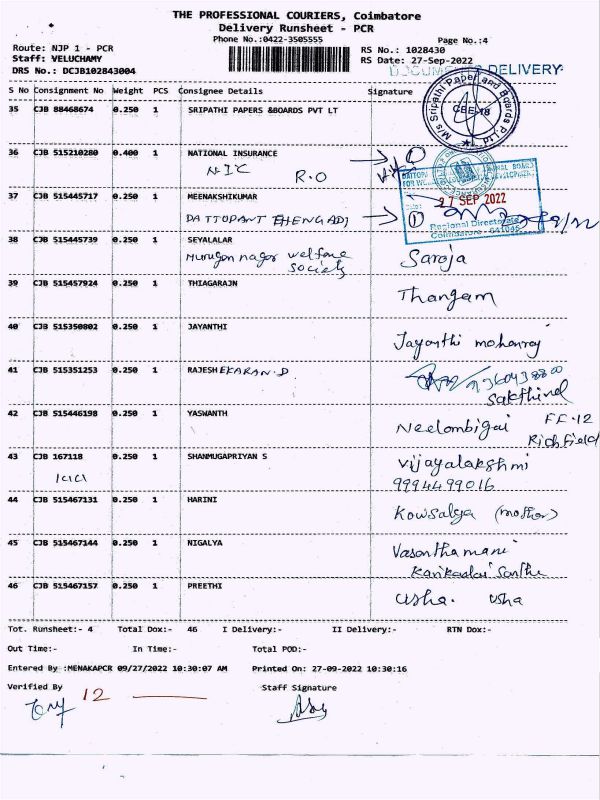 THE PROFESSIONAL COURIERS, Coimbatore
Delivery Runsheet - PCR
Phone No.:0422-3505555
Page No.:4
Route: NJP 1 - PCR
RS No.: 1028430
Staff: VELUCHAMY
RS Date: 27-Sep-2022
DRS No.: DCJB102843004
DOCUMENT DELIVERY
S No Consignment No Weight PCS Consignee Details Signature
35 CJB 88468674 0.250 1 SRIPATHI PAPERS &BOARDS PVT LT
M/s Sripathi Paper and Boards P Ltd
CBE-18
36 CJB 515210280 0.400 1 NATIONAL INSURANCE
NIC R.O
37 CJB 515445717 0.250 1 MEENAKSHIKUMAR
DATTOPANT THENGADI
27 SEP 2022
1
Regional Directorate
Coimbatore - 641045
38 CJB 515445739 0.250 1 SEYALALAR
Murugan nagar welfare
society
Saroja
39 CJB 515457924 0.250 1 THIAGARAJN
Thangam
40 CJB 515350802 0.250 1 JAYANTHI
Jayanthi mohanraj
41 CJB 515351253 0.250 1 RAJESHEKARAN.D
9360438800
Sakthivel
42 CJB 515446198 0.250 1 YASWANTH
Neelambigai FF-12
Richfield
43 CJB 167118 0.250 1 SHANMUGAPRIYAN S
ICICI
Vijayalakshmi
9994499016
44 CJB 515467131 0.250 1 HARINI
Kowsalya (mother)
45 CJB 515467144 0.250 1 NIGALYA
Vasanthamani
46 CJB 515467157 0.250 1 PREETHI
Usha. Usha
Tot. Runsheet:- 4 Total Dox:- 46 I Delivery:- II Delivery:- RTN Dox:-
Out Time:- In Time:- Total POD:-
Entered By :MENAKAPCR 09/27/2022 10:30:07 AM Printed On: 27-09-2022 10:30:16
Verified By Staff Signature
12